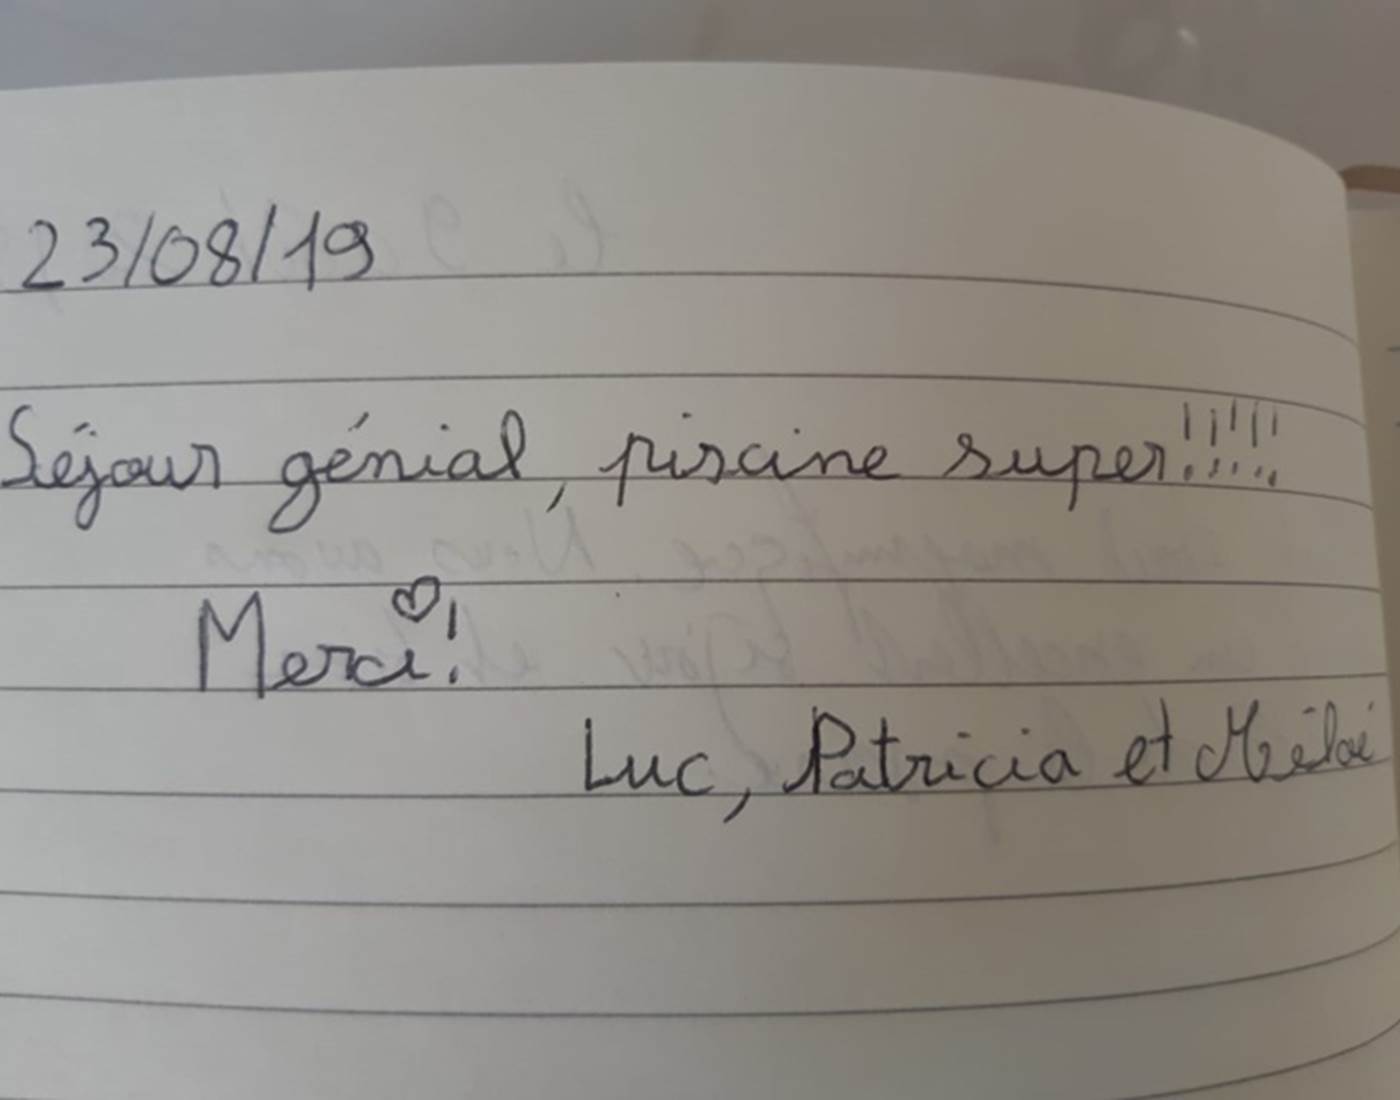 23/08/19
Séjour génial, piscine super!!!!!
Merci!
Luc, Patricia et